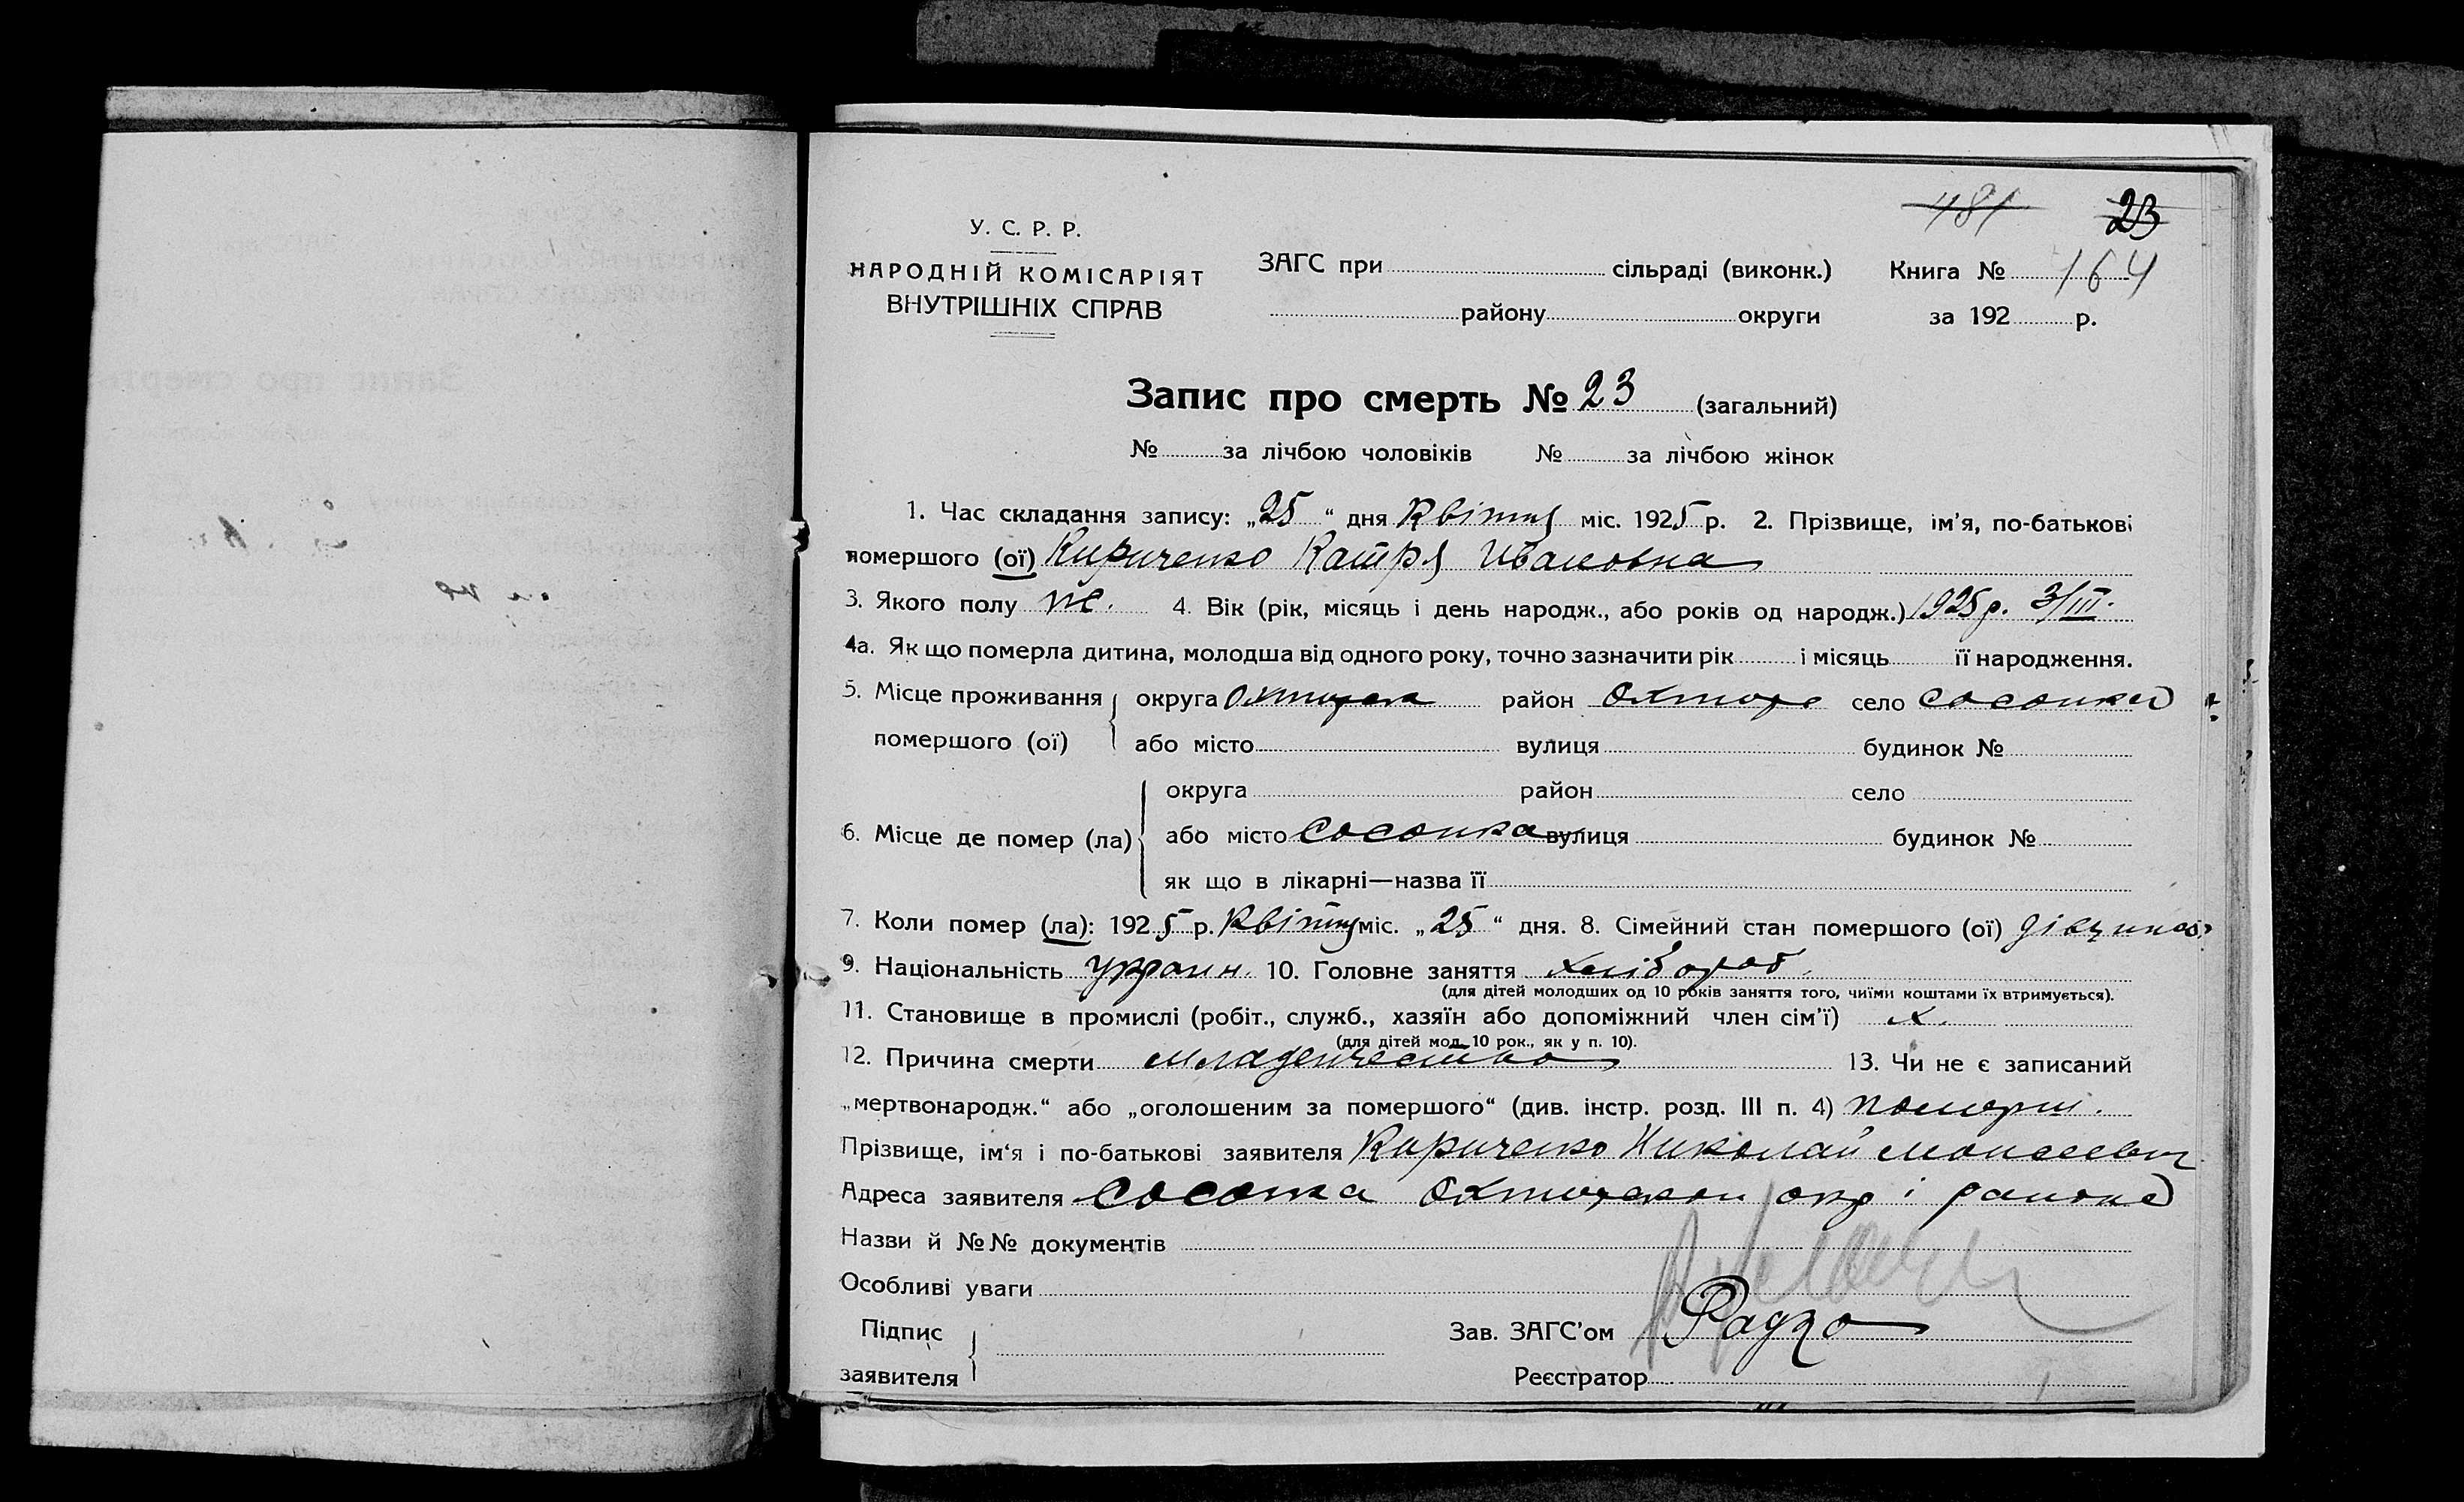 181 23
У. С. Р. Р.
НАРОДНІЙ КОМІСАРІЯТ
ВНУТРІШНІХ СПРАВ
ЗАГС при сільраді (виконк.) Книга № 164
району округи за 192 р.
Запис про смерть № 23 (загальний)
№ за лічбою чоловіків № за лічбою жінок
1. Час складання запису: „25“ дня Квітня міс. 1925 р. 2. Прізвище, ім'я, по-батькові
помершого (ої) Кириченко Катря Ивановна
3. Якого полу ж. 4. Вік (рік, місяць і день народж., або років од народж.) 1925 р. 3/III.
4а. Як що померла дитина, молодша від одного року, точно зазначити рік і місяць її народження.
5. Місце проживання округа район Охтирс село Сосонка
помершого (ої) або місто вулиця будинок №
округа район село
6. Місце де помер (ла) або місто Сосонка вулиця будинок №
як що в лікарні—назва її
7. Коли помер (ла): 1925 р. Квітня міс. „25“ дня. 8. Сімейний стан помершого (ої)
9. Національність украин. 10. Головне заняття хлібороб.
(для дітей молодших од 10 років заняття того, чиїми коштами їх втримується).
11. Становище в промислі (робіт., служб., хазяїн або допоміжний член сім'ї) х.
(для дітей мол. 10 рок., як у п. 10).
12. Причина смерти младенчество 13. Чи не є записаний
„мертвонародж.“ або „оголошеним за помершого“ (див. інстр. розд. III п. 4)
Прізвище, ім'я і по-батькові заявителя Кириченко Николай Моисеевич
Адреса заявителя Сосонка окр і района
Назви й №№ документів
Особливі уваги
Підпис заявителя
Зав. ЗАГС'ом
Реєстратор